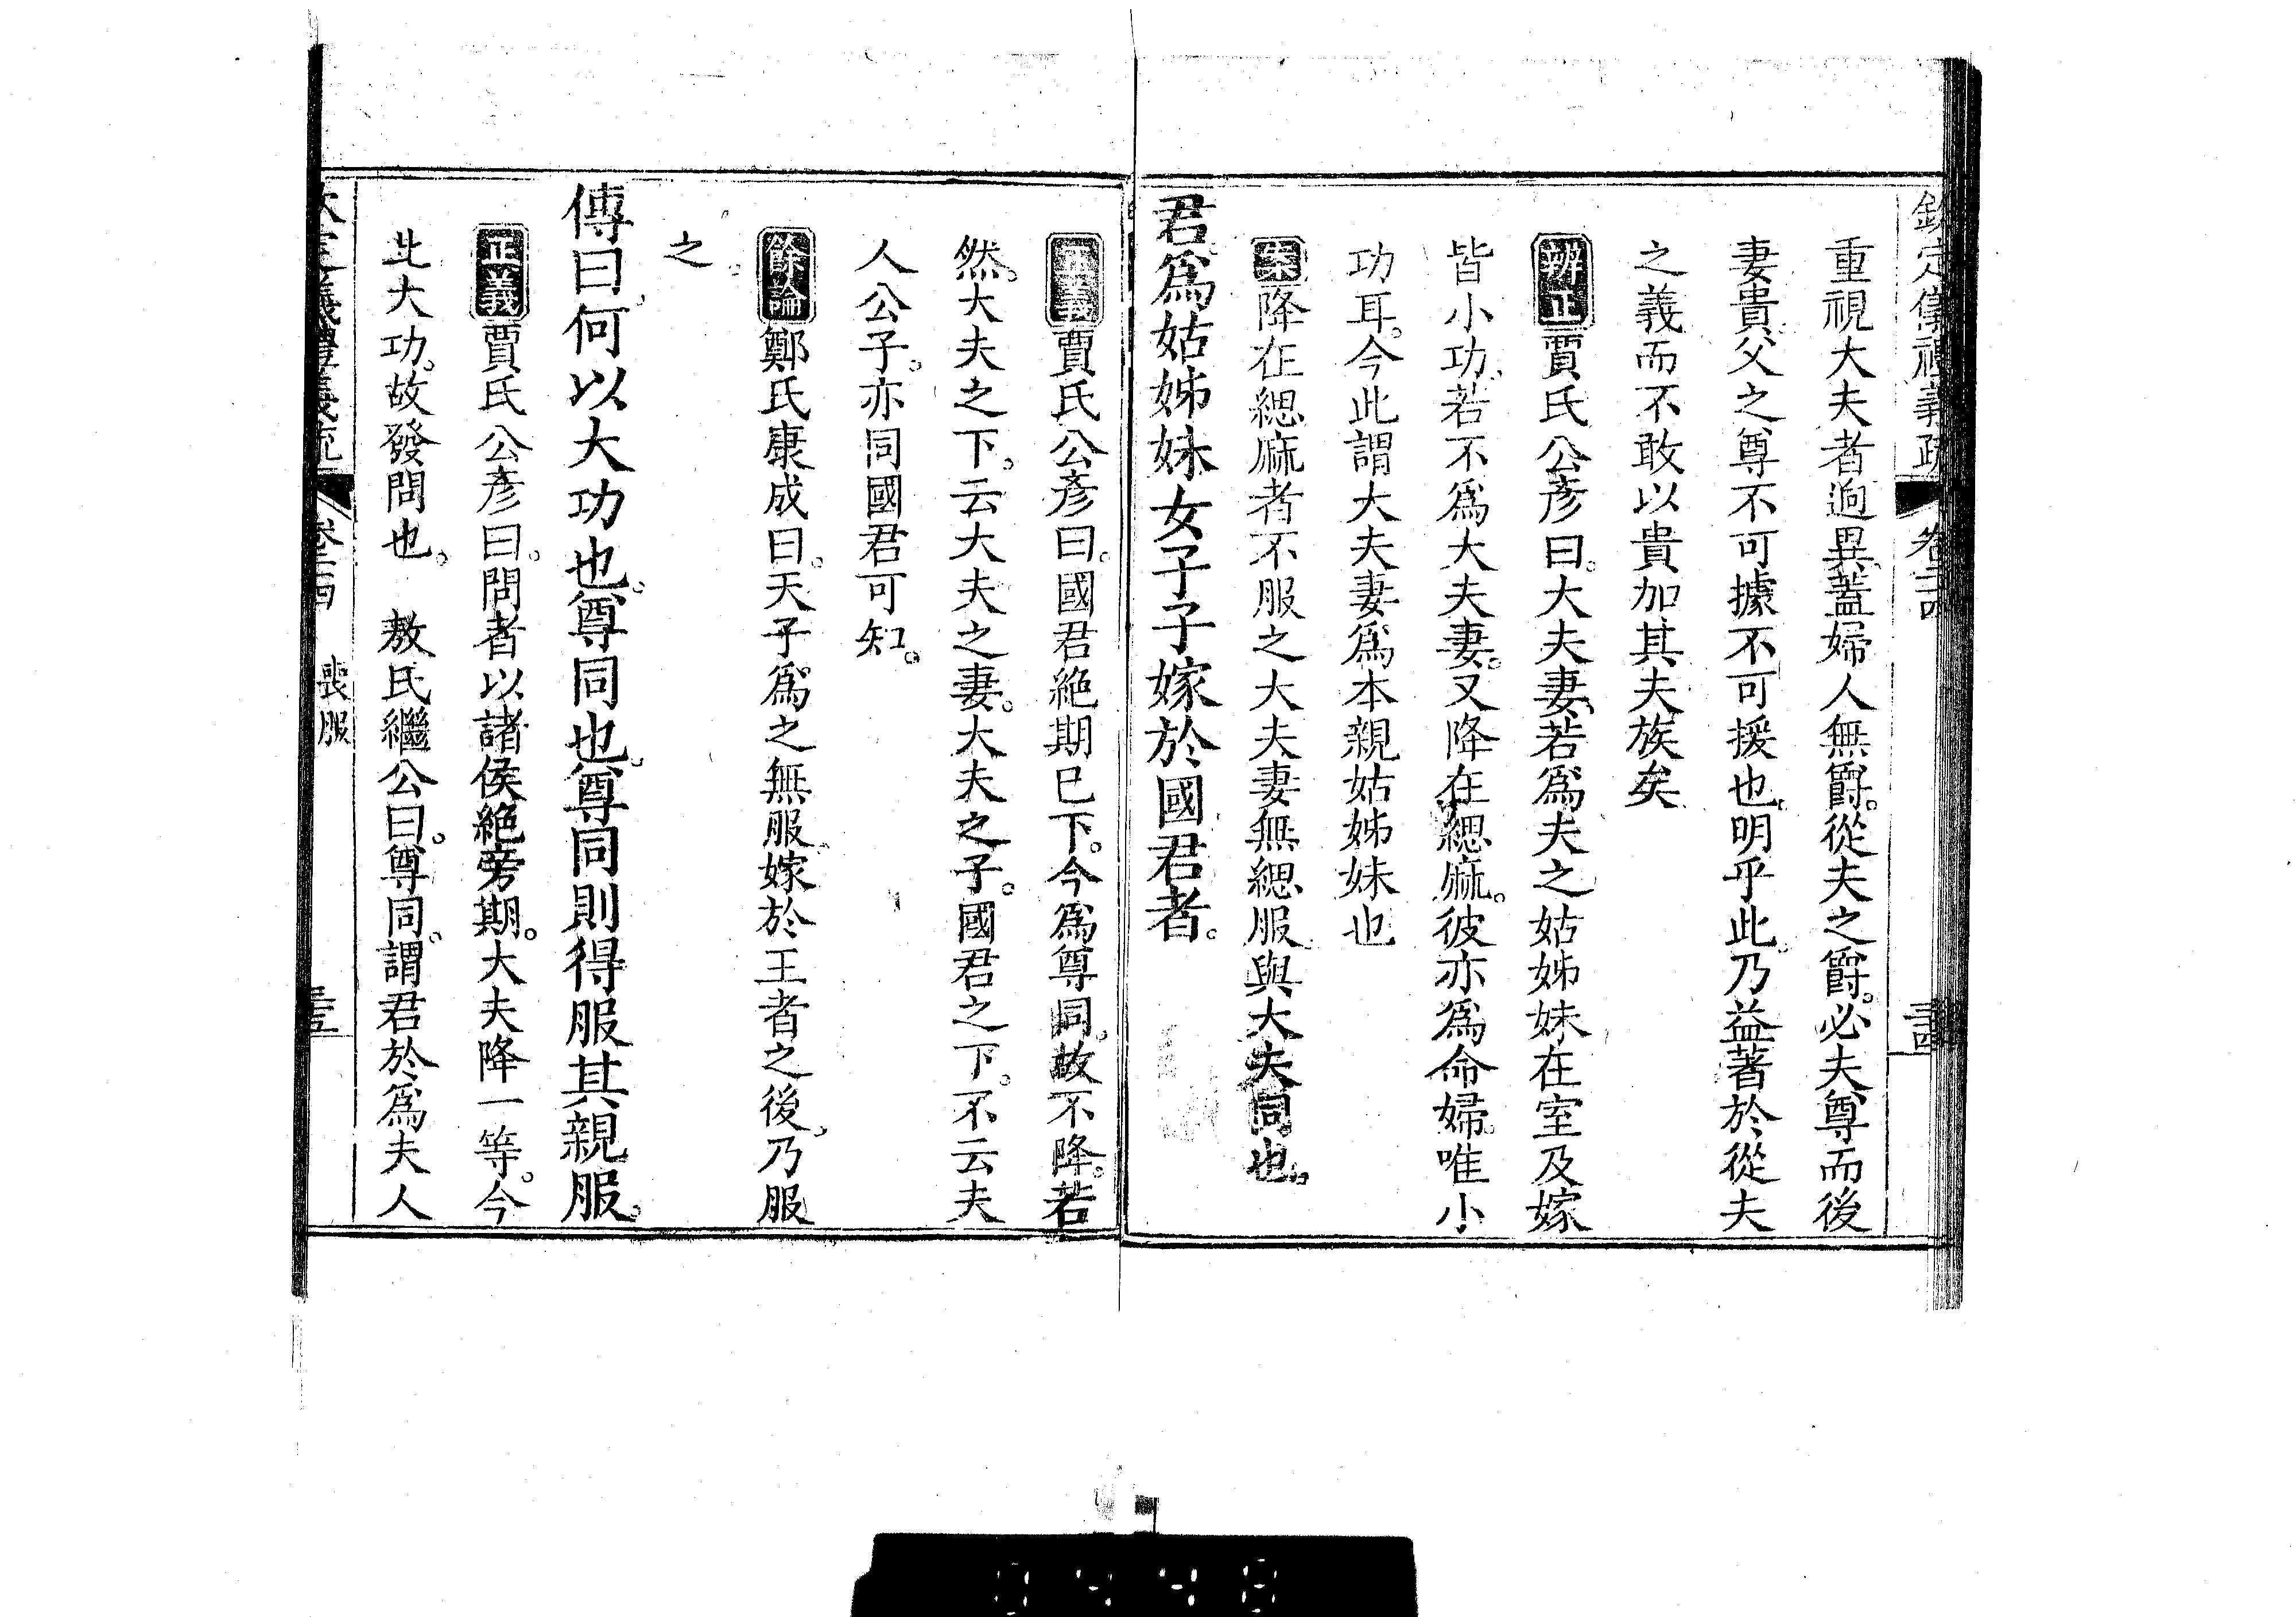 欽定儀禮義疏 卷二十四 三十四
重視大夫者逈異蓋婦人無爵從夫之爵必夫尊而後
妻貴父之尊不可據不可援也明乎此乃益著於從夫
之義而不敢以貴加其夫族矣
辨正賈氏公彥曰大夫妻若爲夫之姑姊妹在室及嫁
皆小功若不爲大夫妻又降在緦麻彼亦爲命婦唯小
功耳今此謂大夫妻爲本親姑姊妹也
案降在緦麻者不服之大夫妻無緦服與大夫同也
君爲姑姊妹女子子嫁於國君者
正義賈氏公彥曰國君絶期已下今爲尊同故不降若
然大夫之下云大夫之妻大夫之子國君之下不云夫
人公子亦同國君可知
餘論鄭氏康成曰天子爲之無服嫁於王者之後乃服
之
傳曰何以大功也尊同也尊同則得服其親服
正義賈氏公彥曰問者以諸侯絶旁期大夫降一等今
此大功故發問也 敖氏繼公曰尊同謂君於爲夫人
欽定儀禮義疏 卷二十四 喪服 三十五